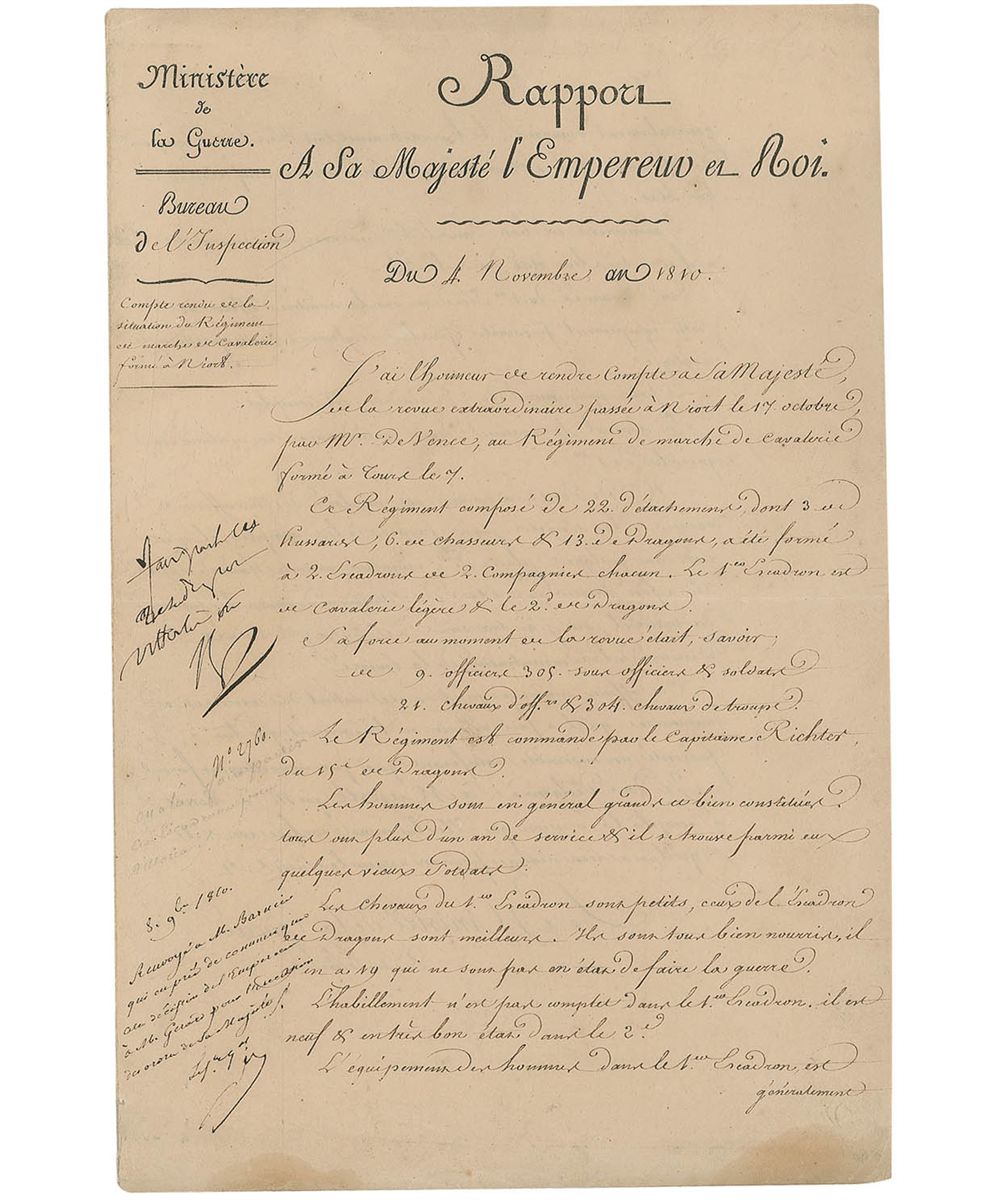 Ministère
de
la Guerre.
Bureau
de l'Inspection
Compte rendu de la
situation du Régiment
de marche de Cavalerie
formé à Niort.
Rapport
A Sa Majesté l'Empereur et Roi.
Du 4. Novembre an 1810.
J'ai l'honneur de rendre Compte à Sa Majesté,
de la revue extraordinaire passée à Niort le 17 octobre,
par Mr. De Vence, au Régiment de marche de Cavalerie
formé à Tours le 7.
Ce Régiment composé de 22. détachemens, dont 3 de
hussards, 6. de chasseurs & 13. de Dragons, a été formé
à 2. Escadrons de 2. Compagnies chacun. Le 1.er Escadron est
de Cavalerie légère & le 2.d de Dragons.
Sa force au moment de la revue était, savoir;
de 9. officiers 305. sous officiers & soldats
21. chevaux d'off.rs & 304. chevaux de troupe.
Le Régiment est commandé par le Capitaine Richter,
du 15.e de Dragons.
Les hommes sont en général grands et bien constitués.
tous ont plus d'un an de service & il se trouve parmi eux
quelques vieux Soldats.
Les Chevaux du 1.er Escadron sont petits, ceux de l'Escadron
de Dragons sont meilleurs. Ils sont tous bien nourris, il
en a 19 qui ne sont pas en état de faire la guerre.
L'habillement n'est pas complet dans le 1.er Escadron. il est
neuf & en très bon état dans le 2.d
L'équipement des hommes dans le 1.er Escadron, est
généralement
N.º 2760.
8. 9.bre 1810.
Renvoyé à M. Barnier
qui est prié de communiquer
la décision de l'Empereur
à M. Gérard pour l'exécution
des ordres de Sa Majesté